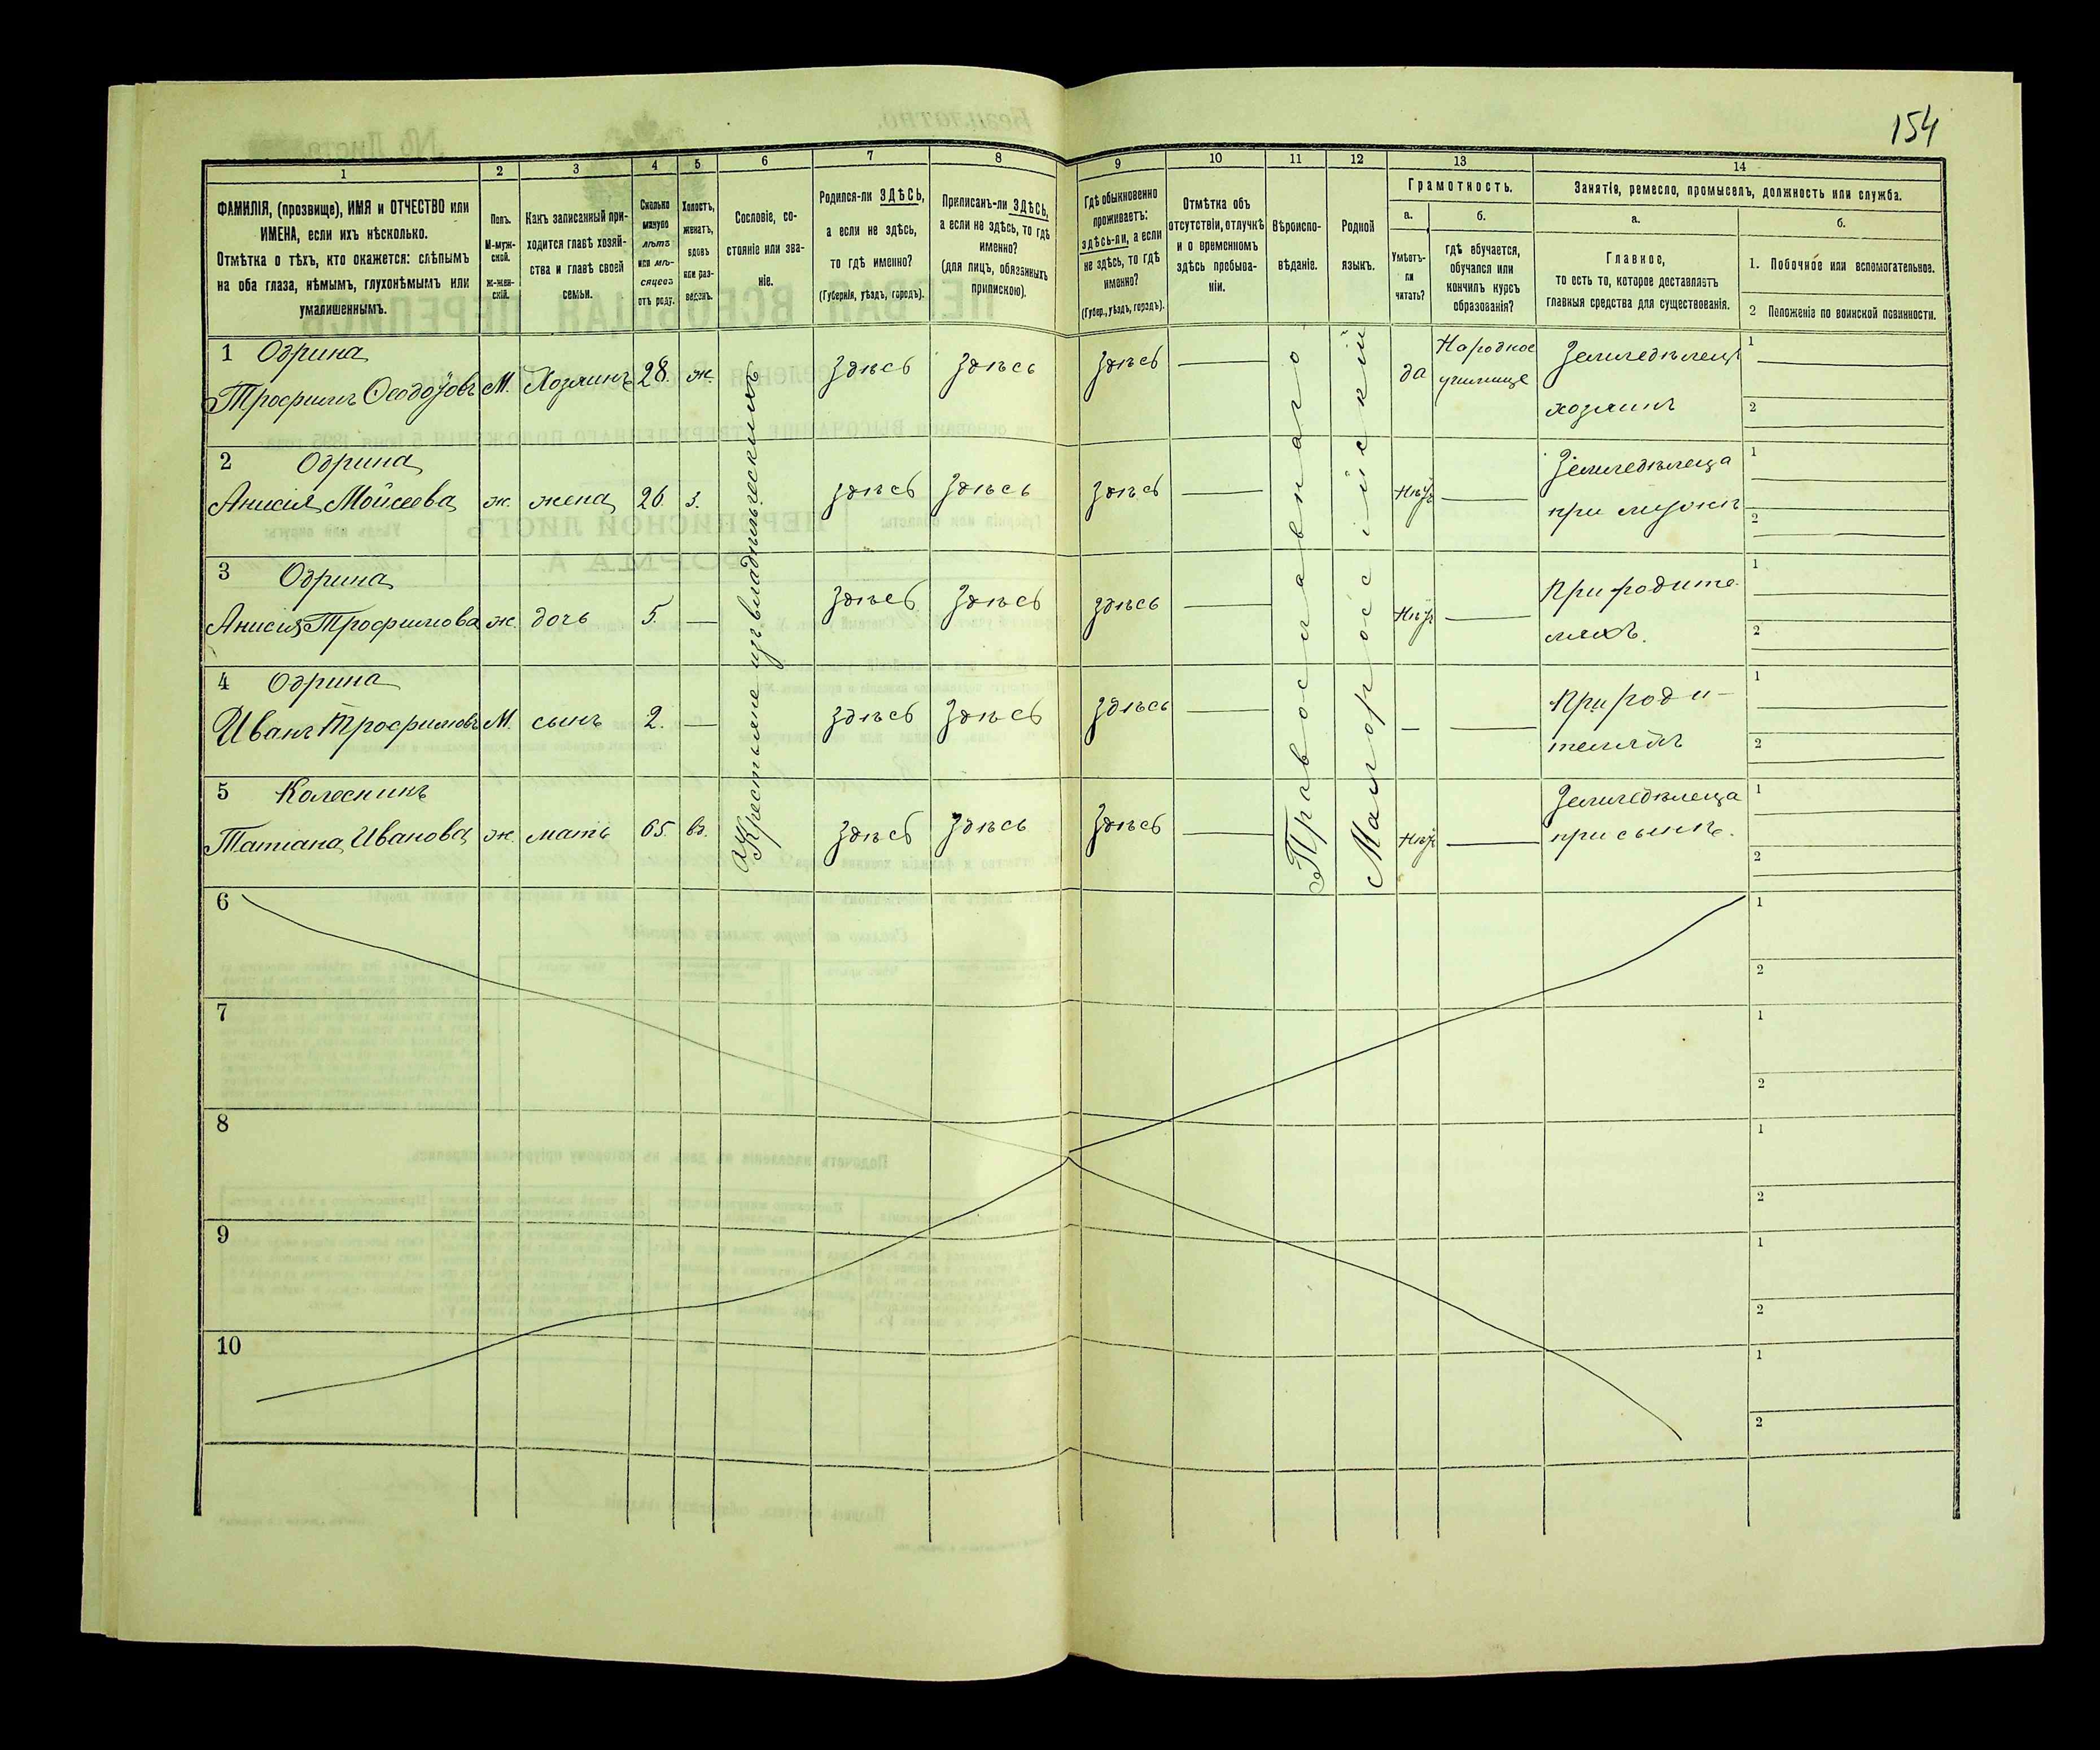 154
1
2
3
4
5
6
7
8
9
10
11
12
13
14
ФАМИЛІЯ, (прозвище), ИМЯ и ОТЧЕСТВО или
ИМЕНА, если ихъ нѣсколько.
Отмѣтка о тѣхъ, кто окажется: слѣпымъ
на оба глаза, нѣмымъ, глухонѣмымъ или
умалишеннымъ.
Полъ.
М-муж-
ской.
Ж-жен-
скій.
Какъ записанный при-
ходится главѣ хозяй-
ства и главѣ своей
семьи.
Сколько
минуло
лѣтъ
или мѣ-
сяцевъ
отъ роду.
Холостъ,
женатъ,
вдовъ
или раз-
веденъ.
Сословіе, со-
стояніе или зва-
ніе.
Родился-ли ЗДѢСЬ,
а если не здѣсь,
то гдѣ именно?
(Губернія, уѣздъ, городъ).
Приписанъ-ли ЗДѢСЬ,
а если не здѣсь, то гдѣ
именно?
(для лицъ, обязанныхъ
припискою).
Гдѣ обыкновенно
проживаетъ:
здѣсь-ли, а если
не здѣсь, то гдѣ
именно?
(Губер., уѣздъ, городъ).
Отмѣтка объ
отсутствіи, отлучкѣ
и о временномъ
здѣсь пребыва-
ніи.
Вѣроиспо-
вѣданіе.
Родной
языкъ.
Грамотность.
а.
Умѣетъ-
ли
читать?
б.
гдѣ обучается,
обучался или
кончилъ курсъ
образованія?
Занятія, ремесло, промыселъ, должность или служба.
а.
Главное,
то есть то, которое доставляетъ
главныя средства для существованія.
б.
1. Побочное или вспомогательное.
2 Положеніе по воинской повинности.
1 Одрина
Трофимъ Ѳеодоровъ М. Хозяинъ 28. ж. Здѣсь Здѣсь Здѣсь да Народное училище Земледѣлецъ хозяинъ 1 2
2 Одрина
Анисія Мойсеева ж. жена 26. з. Здѣсь Здѣсь Здѣсь Нѣтъ Земледѣлеца при мужѣ 1 2
3 Одрина
Анисія Трофимова ж. дочь 5. Здѣсь Здѣсь Здѣсь Нѣтъ При родите- ляхъ. 1 2
4 Одрина
Иванъ Трофимовъ М. сынъ 2. Здѣсь Здѣсь Здѣсь При роди- теляхъ 1 2
5 Колесникъ
Татіана Иванова ж. мать 65 вд. Здѣсь Здѣсь Здѣсь Нѣтъ Земледѣлеца при сынѣ. 1 2
Крестьяне изъ владѣльческихъ
Православнаго
Малороссійскій
6 1 2
7 1 2
8 1 2
9 1 2
10 1 2